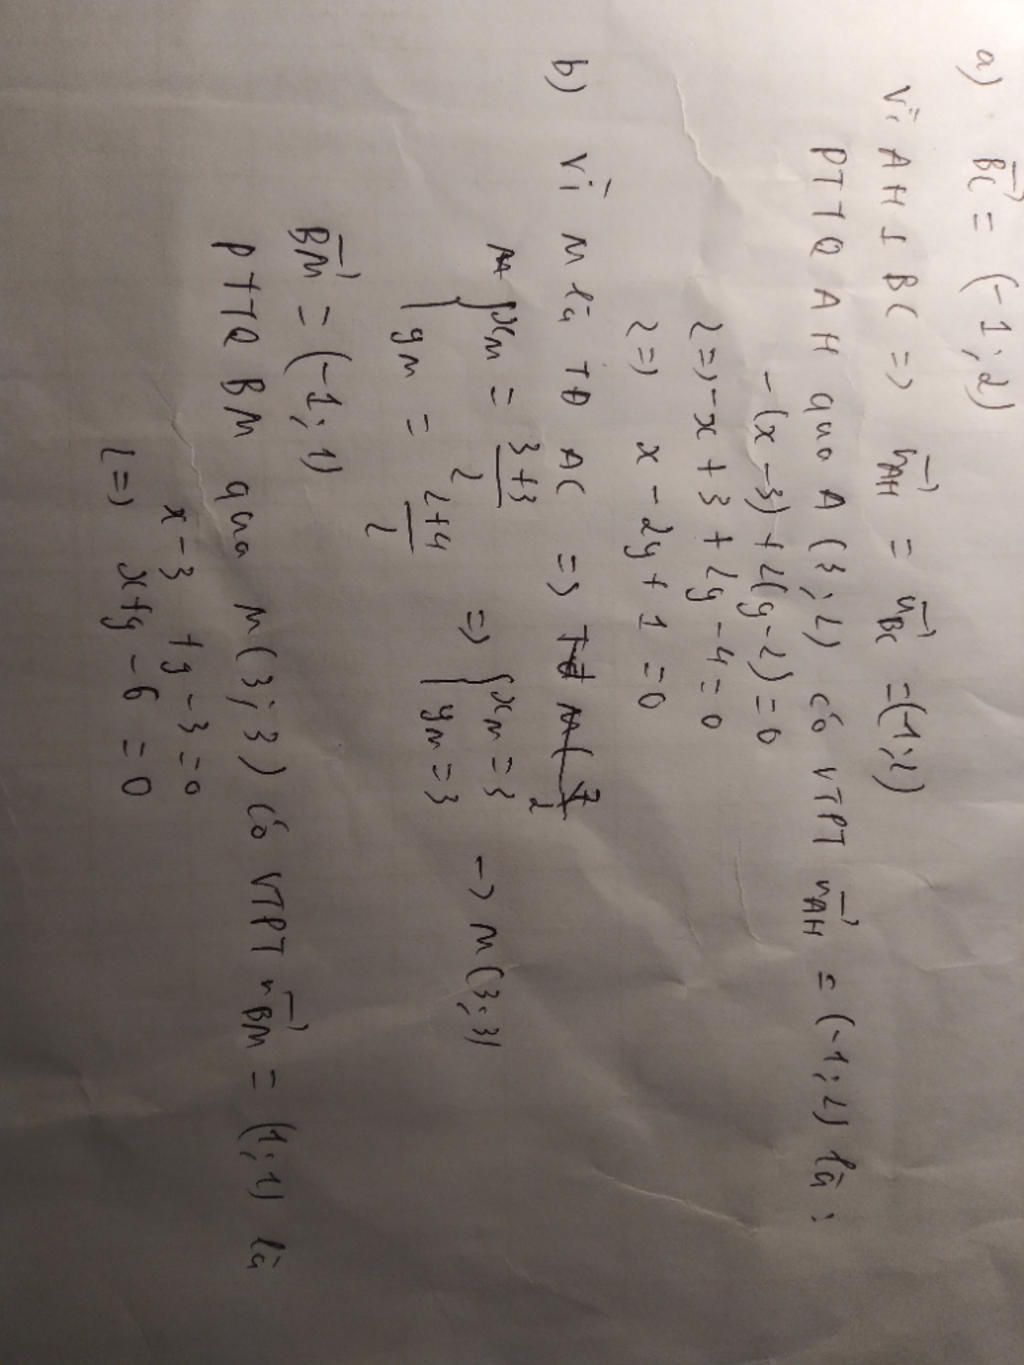 a) BC→ = (-1; 2)
Vì AH ⊥ BC => n→AH = u→BC = (-1; 2)
PTTQ AH qua A (3; 2) có VTPT n→AH = (-1; 2) là :
- (x - 3) + 2(y - 2) = 0
<=> -x + 3 + 2y - 4 = 0
<=> x - 2y + 1 = 0
b) Vì M là TĐ AC =>
{ xM = (3+3)/2 => { xM = 3 -> M(3; 3)
yM = (2+4)/2 yM = 3
BM→ = (-1; 1)
PTTQ BM qua M(3; 3) có VTPT n→BM = (1; 1) là
x - 3 + y - 3 = 0
<=> x + y - 6 = 0